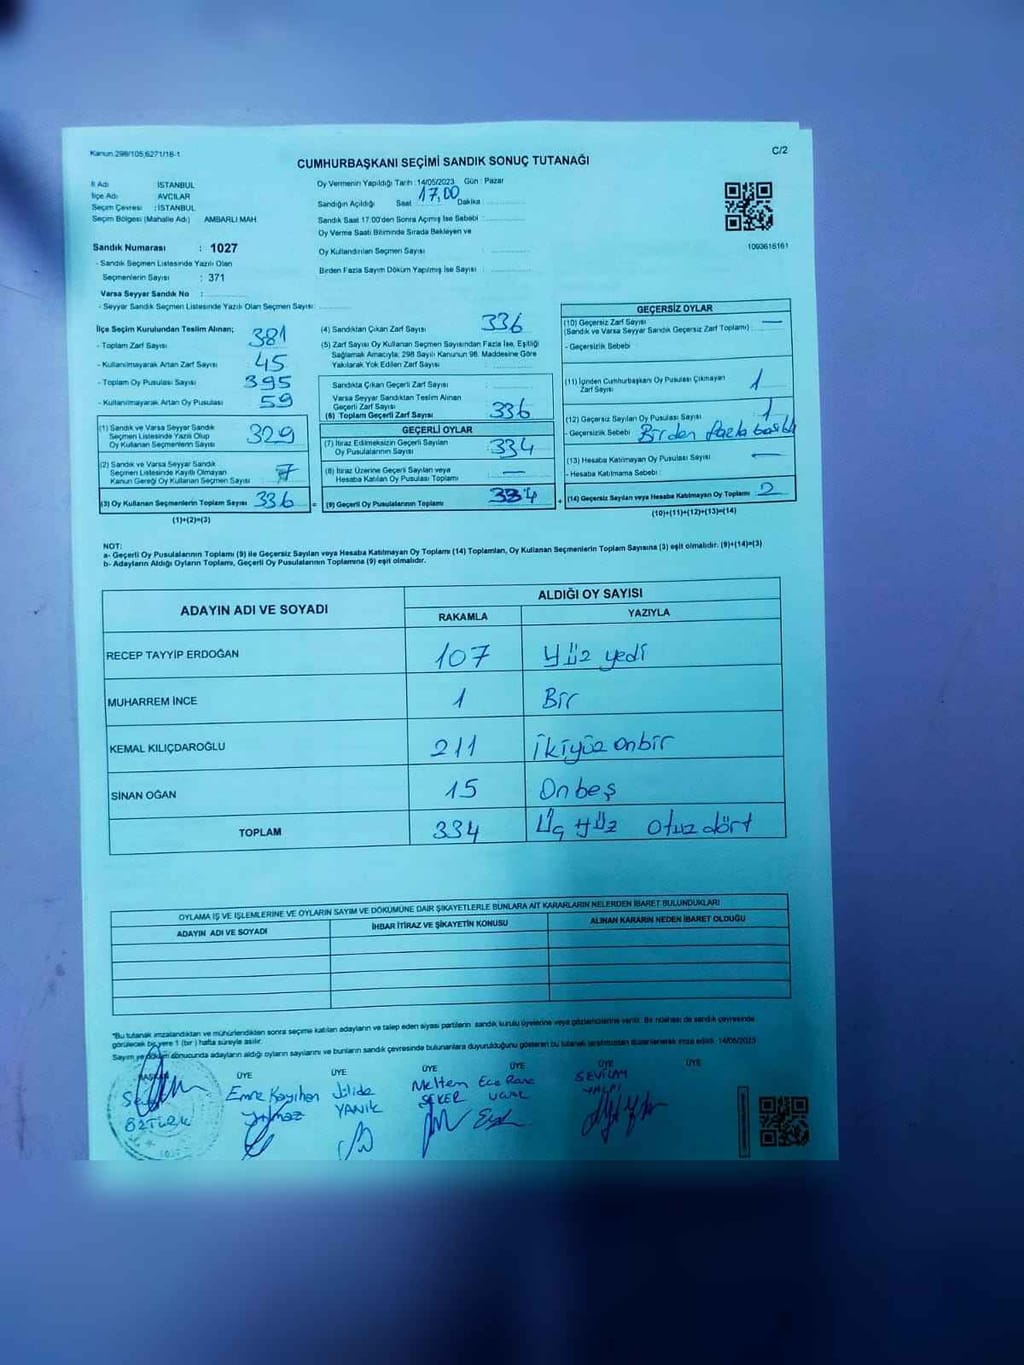 Kanun 298/105,6271/18-1
C/2
CUMHURBAŞKANI SEÇİMİ SANDIK SONUÇ TUTANAĞI
İl Adı İSTANBUL
İlçe Adı AVCILAR
Seçim Çevresi : İSTANBUL
Seçim Bölgesi (Mahalle Adı) AMBARLI MAH.
Sandık Numarası : 1027
- Sandık Seçmen Listesinde Yazılı Olan
Seçmenlerin Sayısı : 371
Varsa Seyyar Sandık No :
- Seyyar Sandık Seçmen Listesinde Yazılı Olan Seçmen Sayısı:
Oy Vermenin Yapıldığı Tarih : 14/05/2023 Gün : Pazar
Sandığın Açıldığı Saat 17,00 Dakika :
Sandık Saat 17.00'den Sonra Açılmış İse Sebebi :
Oy Verme Saati Bitiminde Sırada Bekleyen ve
Oy Kullandırılan Seçmen Sayısı :
Birden Fazla Sayım Döküm Yapılmış İse Sayısı :
1093616161
İlçe Seçim Kurulundan Teslim Alınan;
- Toplam Zarf Sayısı 381
- Kullanılmayarak Artan Zarf Sayısı 45
- Toplam Oy Pusulası Sayısı 395
- Kullanılmayarak Artan Oy Pusulası 59
(1) Sandık ve Varsa Seyyar Sandık
Seçmen Listesinde Yazılı Olup
Oy Kullanan Seçmenlerin Sayısı 329
(2) Sandık ve Varsa Seyyar Sandık
Seçmen Listesinde Kayıtlı Olmayan
Kanun Gereği Oy Kullanan Seçmen Sayısı 7
(3) Oy Kullanan Seçmenlerin Toplam Sayısı 336 =
(1)+(2)=(3)
(4) Sandıktan Çıkan Zarf Sayısı 336
(5) Zarf Sayısı Oy Kullanan Seçmen Sayısından Fazla İse, Eşitliği
Sağlamak Amacıyla, 298 Sayılı Kanunun 98. Maddesine Göre
Yakılarak Yok Edilen Zarf Sayısı :
Sandıkta Çıkan Geçerli Zarf Sayısı :
Varsa Seyyar Sandıktan Teslim Alınan
Geçerli Zarf Sayısı :
(6) Toplam Geçerli Zarf Sayısı 336
GEÇERLİ OYLAR
(7) İtiraz Edilmeksizin Geçerli Sayılan
Oy Pusulasının Sayısı 334
(8) İtiraz Üzerine Geçerli Sayılan veya
Hesaba Katılan Oy Pusulası Toplamı —
(9) Geçerli Oy Pusulalarının Toplamı 334 +
GEÇERSİZ OYLAR
(10) Geçersiz Zarf Sayısı —
(Sandık ve Varsa Seyyar Sandık Geçersiz Zarf Toplamı)
- Geçersizlik Sebebi :
(11) İçinden Cumhurbaşkanı Oy Pusulası Çıkmayan
Zarf Sayısı 1
(12) Geçersiz Sayılan Oy Pusulası Sayısı 1
- Geçersizlik Sebebi Birden fazla baskı
(13) Hesaba Katılmayan Oy Pusulası Sayısı —
- Hesaba Katılmama Sebebi :
(14) Geçersiz Sayılan veya Hesaba Katılmayan Oy Toplamı 2
(10)+(11)+(12)+(13)=(14)
NOT:
a- Geçerli Oy Pusulalarının Toplamı (9) ile Geçersiz Sayılan veya Hesaba Katılmayan Oy Toplamı (14) Toplamları, Oy Kullanan Seçmenlerin Toplam Sayısına (3) eşit olmalıdır. (9)+(14)=(3)
b- Adayların Aldığı Oyların Toplamı, Geçerli Oy Pusulalarının Toplamına (9) eşit olmalıdır.
ADAYIN ADI VE SOYADI ALDIĞI OY SAYISI
RAKAMLA YAZIYLA
RECEP TAYYİP ERDOĞAN 107 Yüz yedi
MUHARREM İNCE 1 Bir
KEMAL KILIÇDAROĞLU 211 İkiyüz onbir
SİNAN OĞAN 15 On beş
TOPLAM 334 Üç yüz otuz dört
OYLAMA İŞ VE İŞLEMLERİNE VE OYLARIN SAYIM VE DÖKÜMÜNE DAİR ŞİKAYETLERLE BUNLARA AİT KARARLARIN NELERDEN İBARET BULUNDUKLARI
ADAYIN ADI VE SOYADI İHBAR İTİRAZ VE ŞİKAYETİN KONUSU ALINAN KARARIN NEDEN İBARET OLDUĞU
*Bu tutanak imzalandıktan ve mühürlendikten sonra seçime katılan adayların ve talep eden siyasi partilerin sandık kurulu üyelerine veya gözlemcilerine verilir. Bir nüshası de sandık çevresinde
görülecek bir yere 1 (bir) hafta süreyle asılır.
Sayım ve döküm sonucunda adayların aldığı oyların sayılarını ve bunların sandık çevresinde bulunanlara duyurulduğunu gösteren bu tutanak tarafımızdan düzenlenerek imza edildi. 14/05/2023
BAŞKAN ÜYE ÜYE ÜYE ÜYE ÜYE ÜYE
Emre Kayıhan Jülide Meltem Ece Rana SEVİLAY
ÖZTÜRK Yılmaz YANIK ŞEKER UÇAL